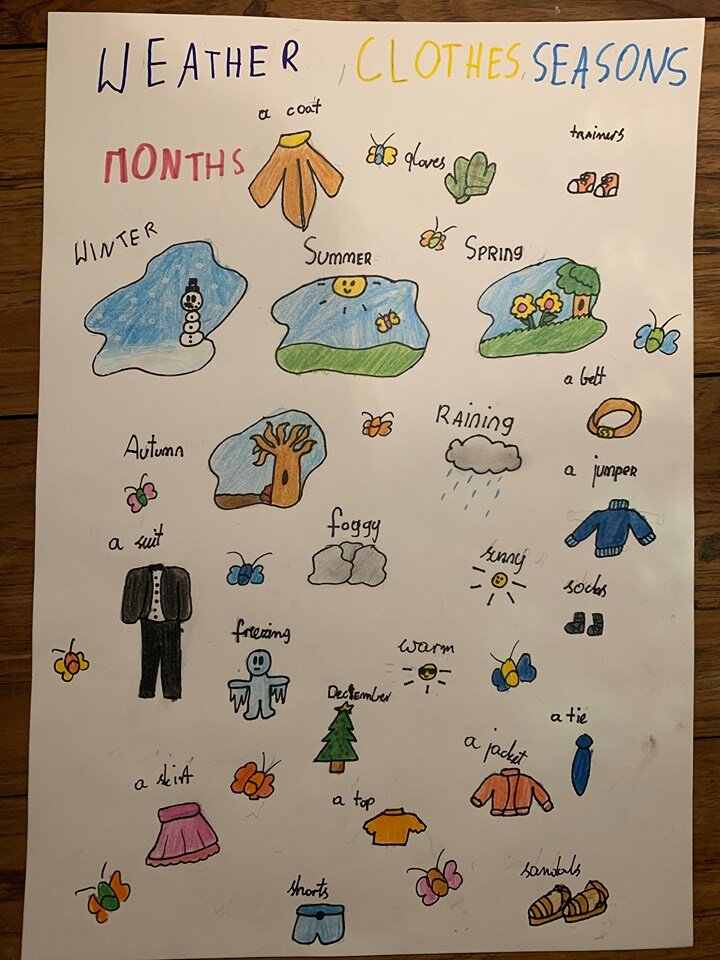 WEATHER, CLOTHES, SEASONS
MONTHS
a coat
gloves
trainers
WINTER
SUMMER
SPRING
a belt
Autumn
Raining
a jumper
a suit
foggy
sunny
socks
freezing
warm
December
a tie
a jacket
a skirt
a top
shorts
sandals